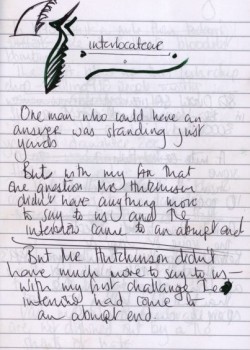 interlocateur
One man who could have an
answer was standing just
yards
But with my for that
one question Mr Hutchinson
didn't have anything more
to say to us and the
interview came to an abrupt end
But Mr Hutchinson didn't
have much more to say to us -
with my first challange the
interview had come to
an abrupt end.